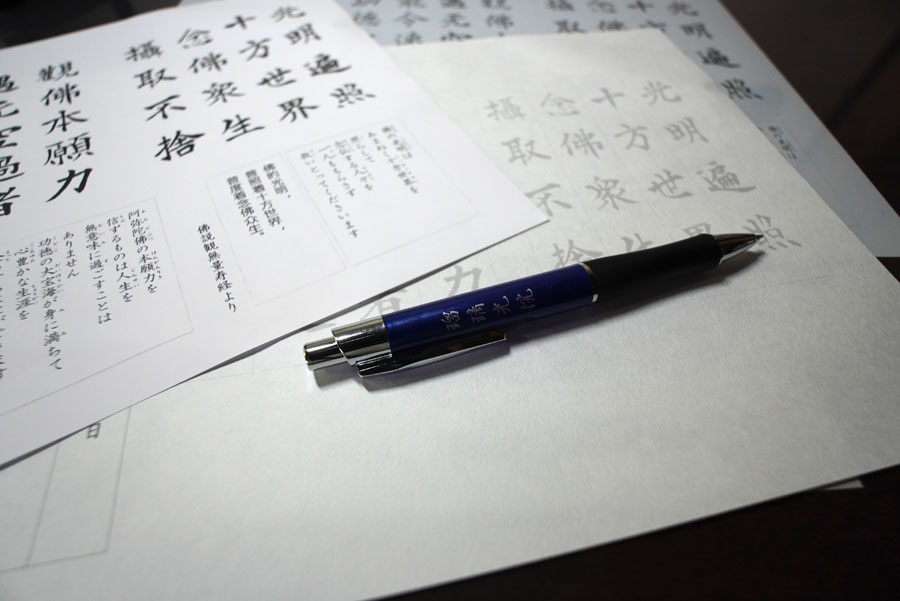 光明遍照
十方世界
念佛衆生
攝取不捨
觀佛本願力
空過者
佛の光明は
あまねく十方世界を
一人ももらさず
救いとってくださいます
佛的光明，
普照着十方世界，
普度着念佛众生。
佛説観無量寿経より
阿弥陀佛の本願力を
信ずるものは人生を
無意味に過ごすことは
ありません
功徳の大宝海が身に満ちて
心豊かな生涯を
光明遍照
十方世界
念佛衆生
攝取不捨
力
日
瑠璃光院